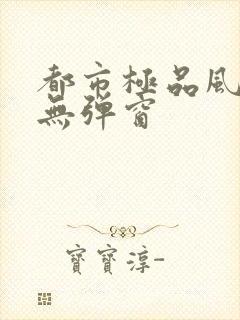 都市極品風
無彈窗
寶寶淳-